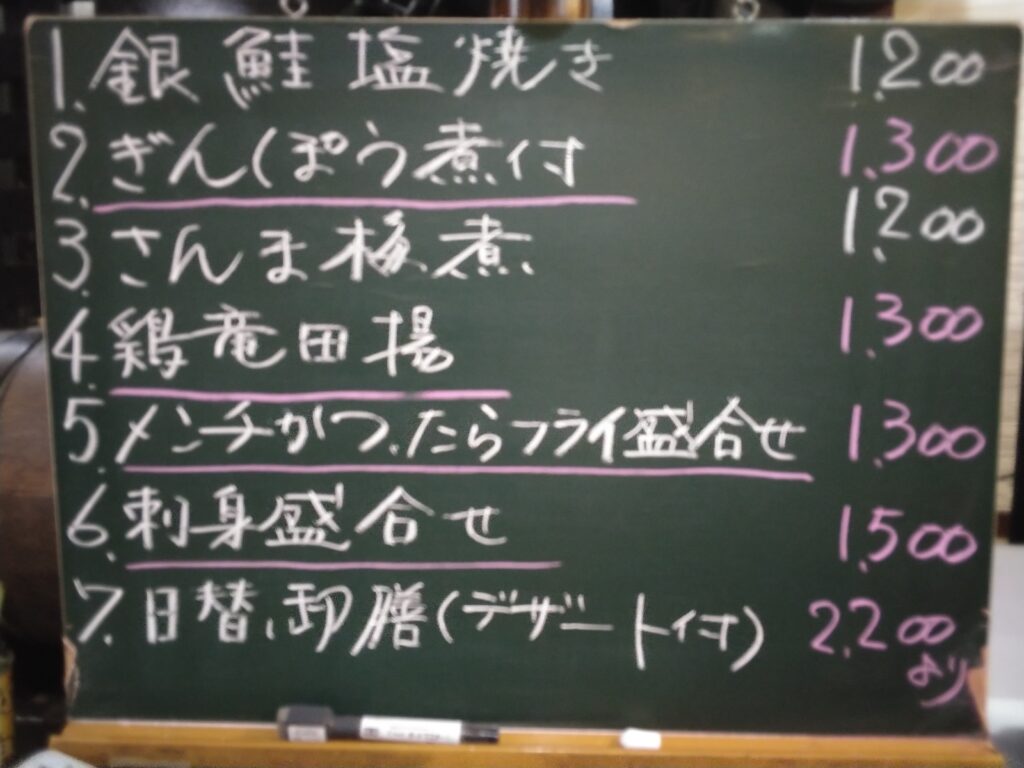 1. 銀鮭塩焼き 1,200
2. ぎんぽう煮付 1,300
3. さんま梅煮 1,200
4. 鶏竜田揚 1,300
5. メンチかつ、たらフライ盛合せ 1,300
6. 刺身盛合せ 1,500
7. 日替、御膳(デザート付) 2,200
より